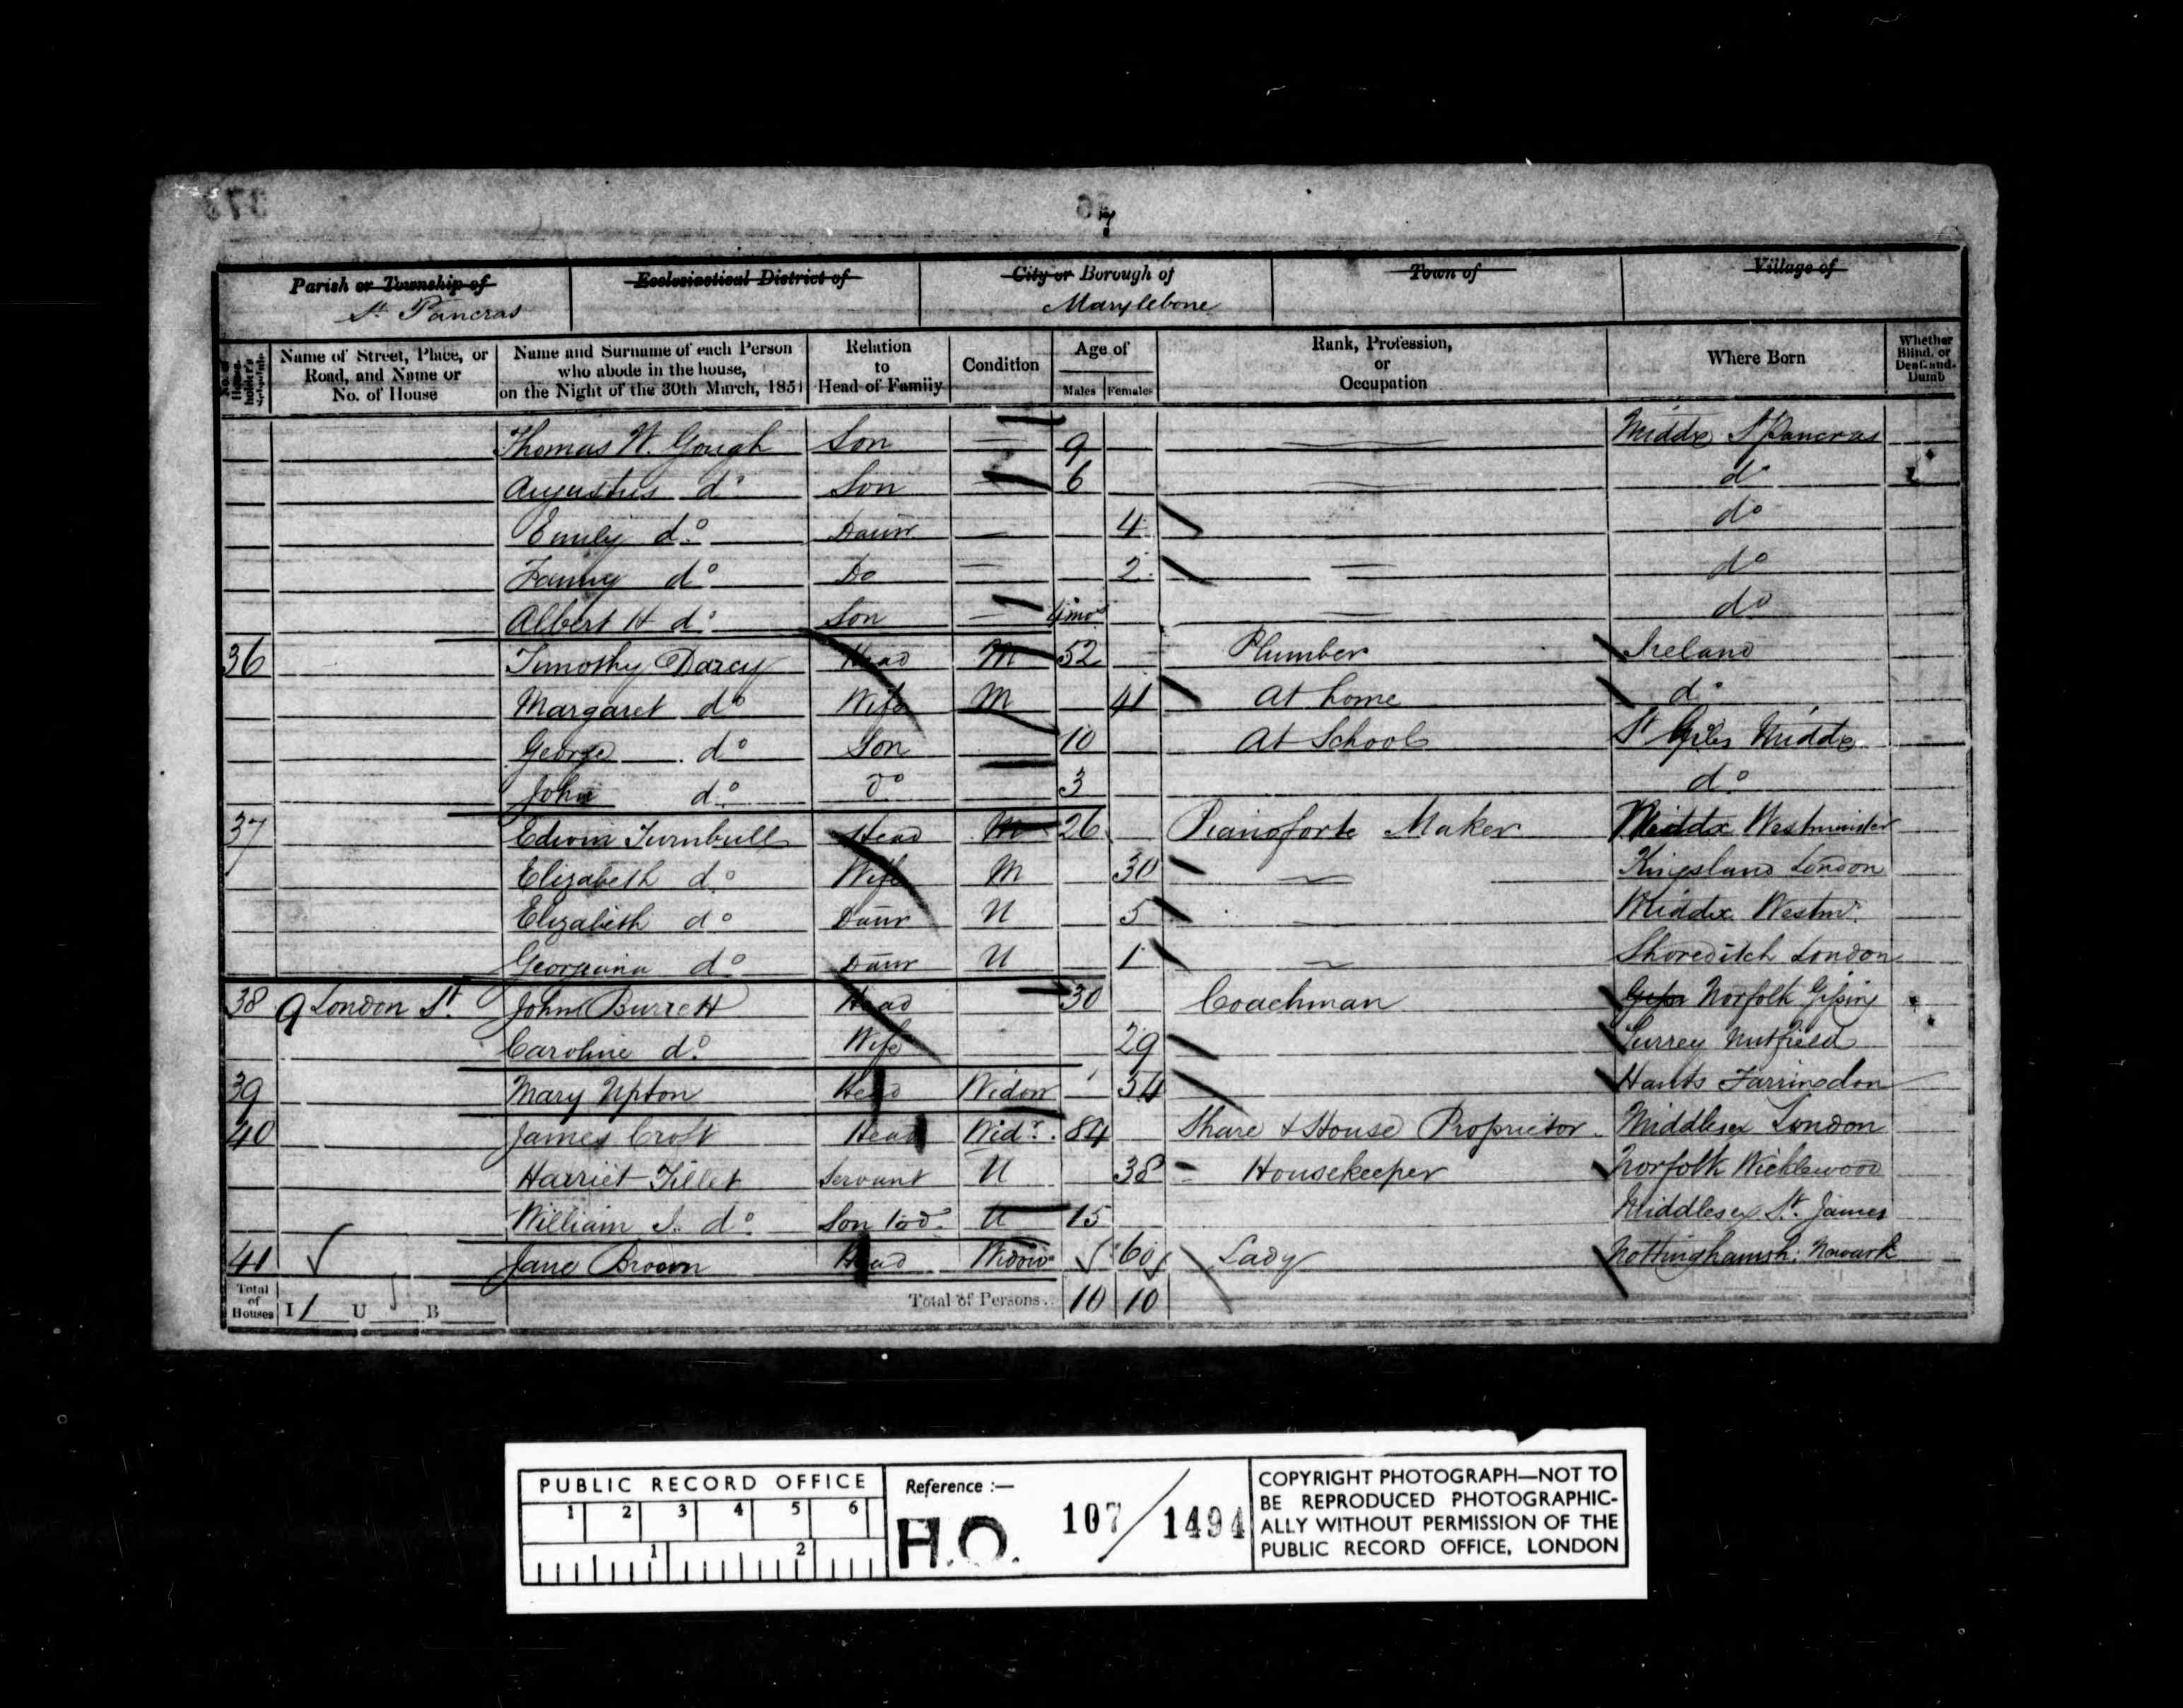 7
Parish or Township of
Ecclesiastical District of
City or Borough of
Town of
Village of
St Pancras
Marylebone
No. of House-holder's Schedule
Name of Street, Place, or Road, and Name or No. of House
Name and Surname of each Person who abode in the house, on the Night of the 30th March, 1851
Relation to Head of Family
Condition
Age of
Males Females
Rank, Profession, or Occupation
Where Born
Whether Blind, or Deaf-and-Dumb
Thomas W. Gough Son — 9 Middx St Pancras
Augustus do Son — 6 do
Emily do Daur — 4 do
Fanny do Do — 2 do
Albert H do Son — 4mos do
36 Timothy Darcy Head M 52 Plumber Ireland
Margaret do Wife M 41 At home do
George do Son 10 At School St Giles Middx
John do Do 3 do
37 Edwin Turnbull Head M 26 Pianoforte Maker Middx Westminster
Elizabeth do Wife M 30 Kingsland London
Elizabeth do Daur U 5 Middx Westmr
Georgiana do Daur U 1 Shoreditch London
38 9 London St. John Burrett Head 30 Coachman Norfolk Gissing
Caroline do Wife 29 Surrey Nutfield
39 Mary Upton Head Widow 34 Hants Farringdon
40 James Croft Head Widr. 84 Share & House Proprietor Middlesex London
Harriet Tillet Servant U 38 Housekeeper Norfolk Wicklewood
William S. do Son to do U 15 Middlesex St. James
41 Jane Brown Head Widow 60 Lady Nottinghamsh: Newark
Total of Houses I 1 U B Total of Persons.. 10 10
PUBLIC RECORD OFFICE
1 2 3 4 5 6
1 2
Reference :—
H.O. 107/1494
COPYRIGHT PHOTOGRAPH—NOT TO
BE REPRODUCED PHOTOGRAPHIC-
ALLY WITHOUT PERMISSION OF THE
PUBLIC RECORD OFFICE, LONDON